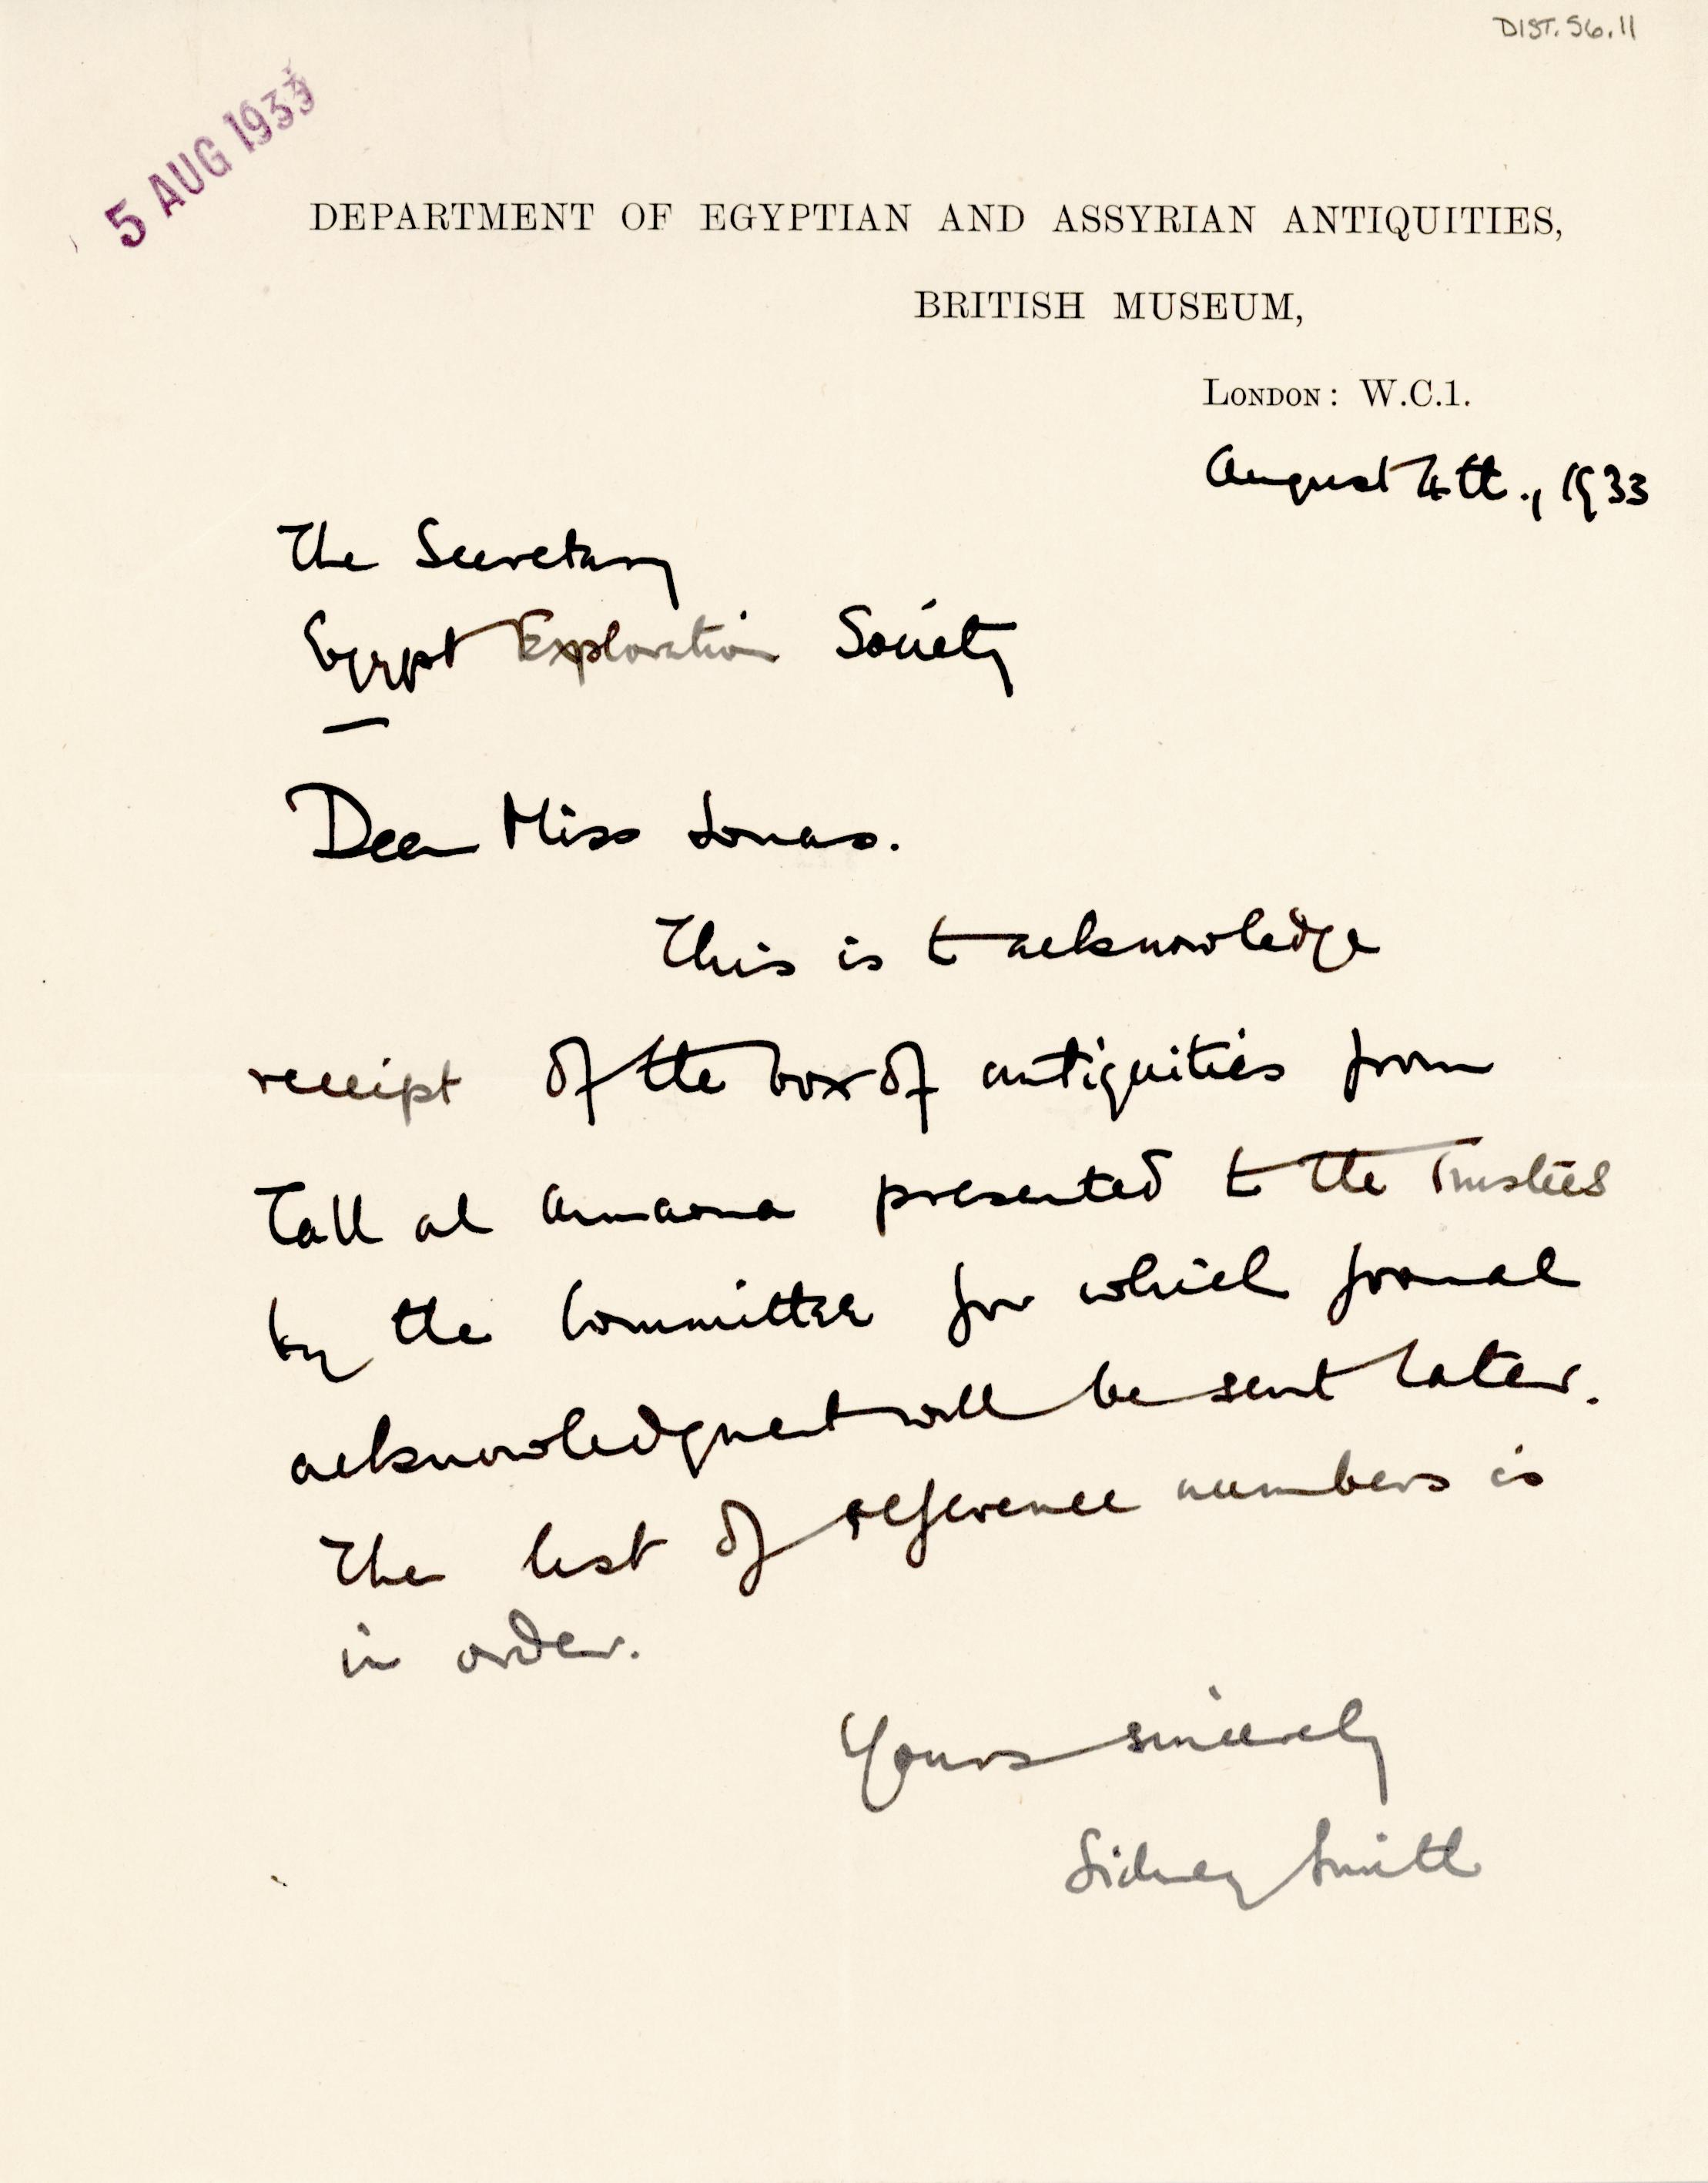 DIST. 56.11
5 AUG 1933
DEPARTMENT OF EGYPTIAN AND ASSYRIAN ANTIQUITIES,
BRITISH MUSEUM,
LONDON: W.C.1.
August 4th., 1933
The Secretary
Egypt Exploration Society
—
Dear Miss Jonas.
This is to acknowledge
receipt of the box of antiquities from
Tall al Amarna presented to the Trustees
by the Committee for which formal
acknowledgment will be sent later.
The list of reference numbers is
in order.
Yours sincerely
Sidney Smith